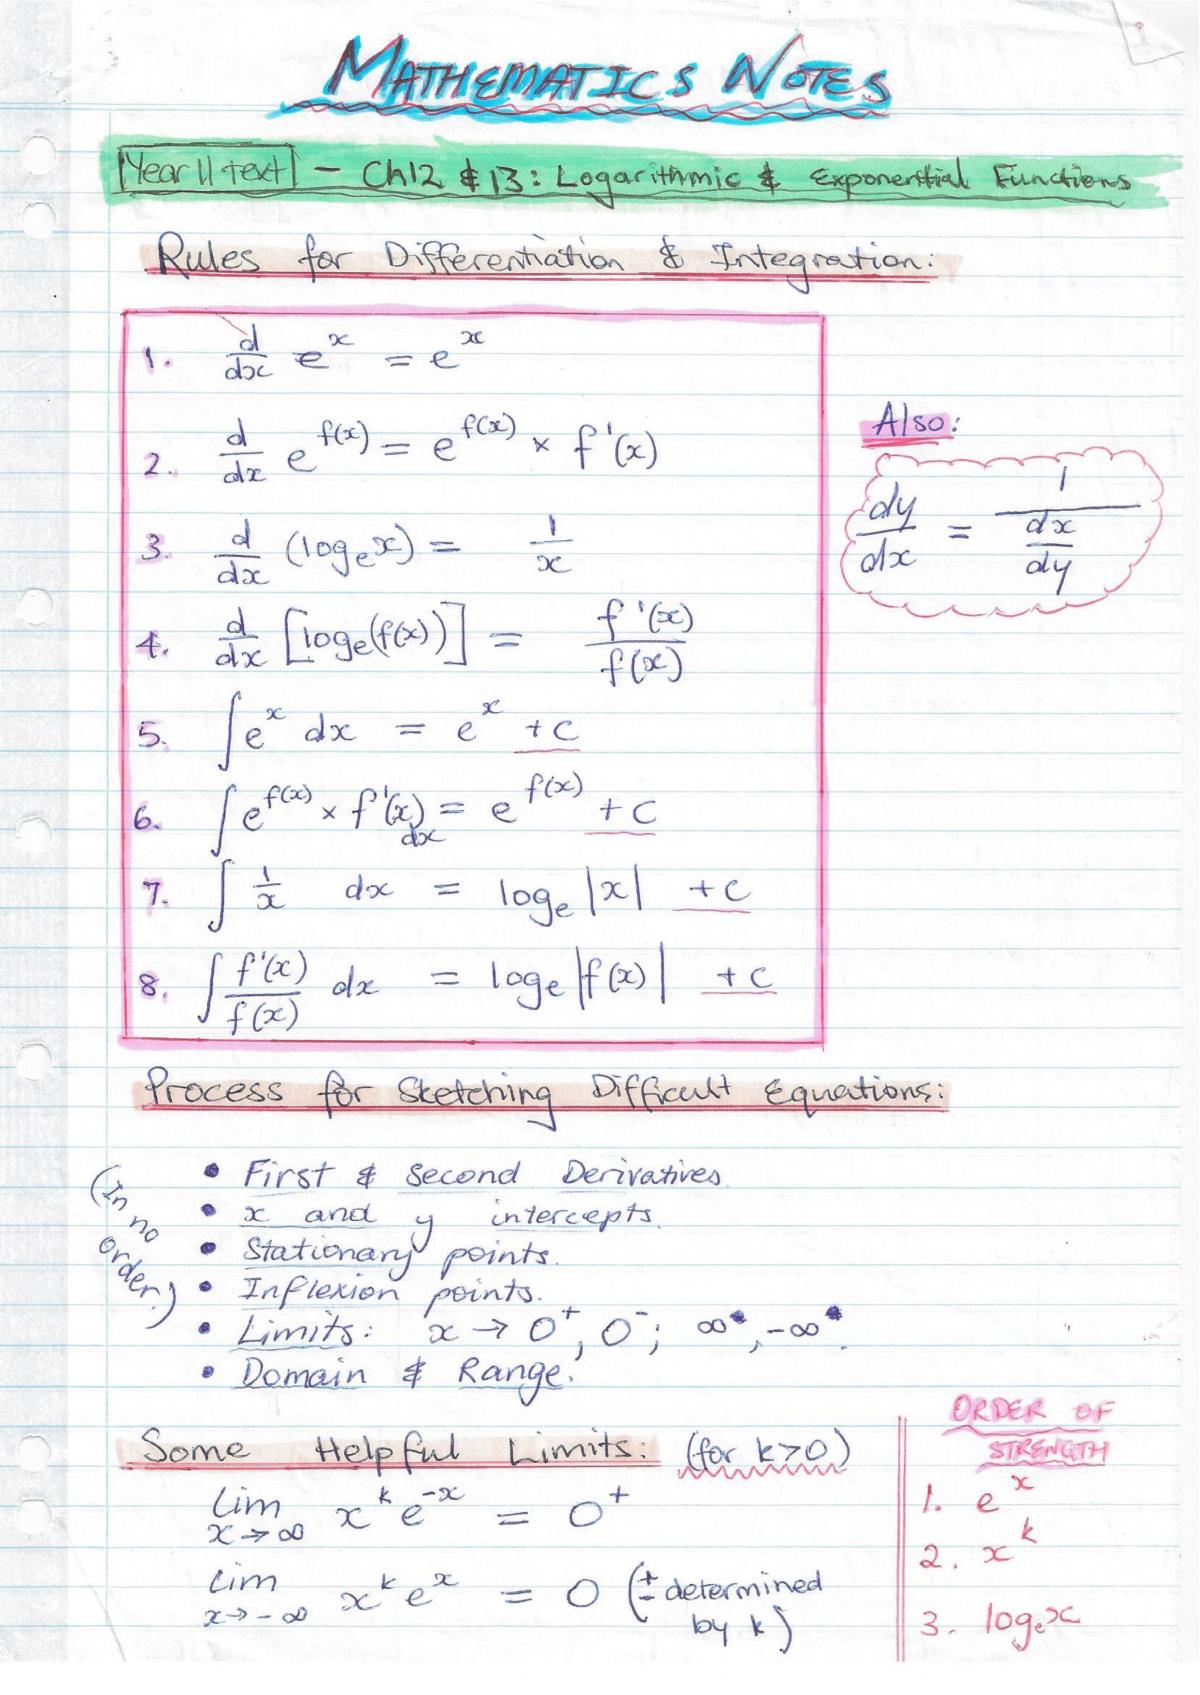 MATHEMATICS NOTES
Year 11 text - Ch12 & 13: Logarithmic & Exponential Functions
Rules for Differentiation & Integration:
1. d/dx e^x = e^x
2. d/dx e^f(x) = e^f(x) × f'(x)
3. d/dx (logₑx) = 1/x
4. d/dx [logₑ(f(x))] = f'(x)/f(x)
5. ∫e^x dx = e^x + c
6. ∫e^f(x) × f'(x) dx = e^f(x) + c
7. ∫ 1/x dx = logₑ|x| + c
8. ∫ f'(x)/f(x) dx = logₑ|f(x)| + c
Also:
dy/dx = 1/(dx/dy)
Process for Sketching Difficult Equations:
(In no order.)
• First & Second Derivatives.
• x and y intercepts.
• Stationary points.
• Inflexion points.
• Limits: x → 0⁺, 0⁻; ∞, -∞.
• Domain & Range.
Some Helpful Limits: (for k>0)
lim x→∞ x^k e^-x = 0⁺
lim x→-∞ x^k e^x = 0 (± determined
by k)
ORDER OF
STRENGTH
1. e^x
2. x^k
3. logₑx